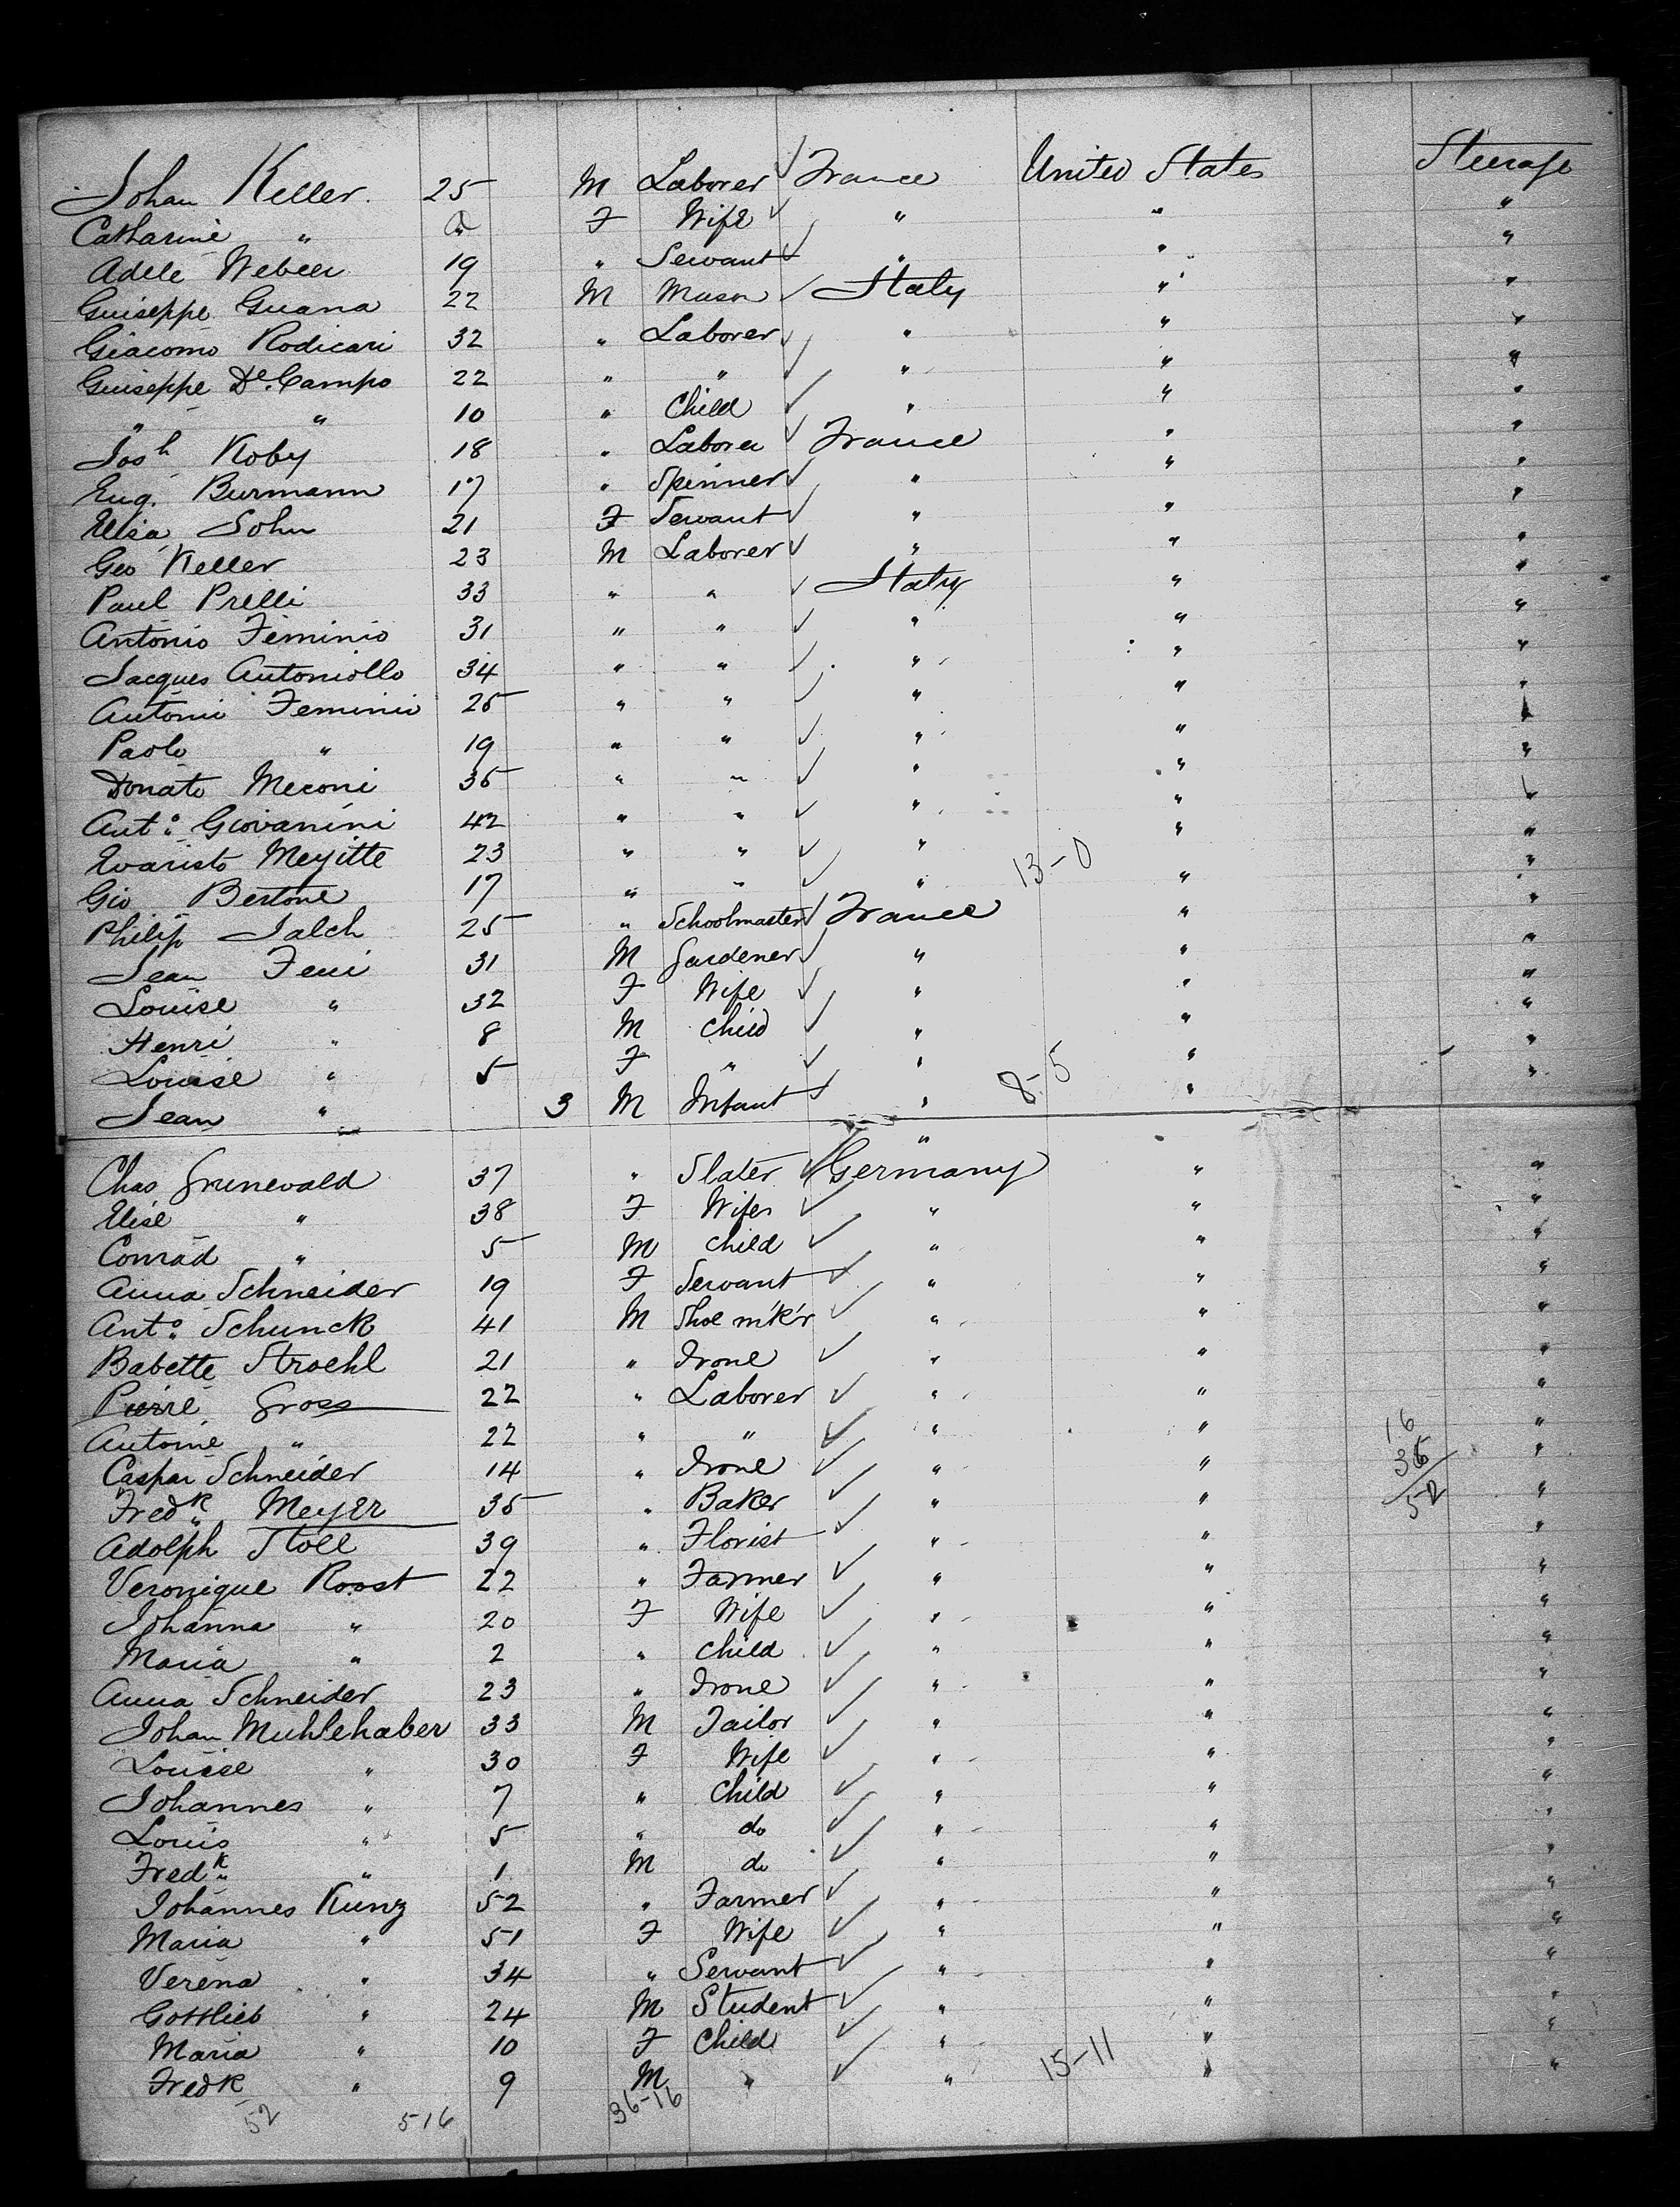 Johan Keller. 25 M Laborer ✓ France United States Steerage
Catharine " " F Wife ✓ " " "
Adele Weber 19 " Servant ✓ " " "
Guiseppe Guana 22 M Mason ✓ Italy " "
Giacomo Rodicari 32 " Laborer ✓ " " "
Guiseppe De Campo 22 " " ✓ " " "
" " 10 " Child ✓ " " "
Josh Koby 18 " Laborer ✓ France " "
Eug. Burmann 17 " Spinner ✓ " " "
Elisa John 21 F Servant ✓ " " "
Geo Keller 23 M Laborer ✓ " " "
Paul Prelli 33 " " ✓ Italy " "
Antonio Feminio 31 " " ✓ " " "
Jacques Antoniollo 34 " " ✓ " " "
Antonio Feminio 25 " " ✓ " " "
Paolo " 19 " " ✓ " " "
Donato Meconi 35 " " ✓ " " "
Anto. Giovanini 42 " " ✓ " " "
Evaristo Meyitte 23 " " ✓ " " "
Gio Bertone 17 " " ✓ " 13-0 "
Philip Jalch 25 " Schoolmaster ✓ France " "
Jean Feui 31 M Gardener ✓ " " "
Louise " 32 F Wife ✓ " " "
Henri " 8 M Child ✓ " " "
Louise " 5 F " ✓ " " "
Jean " 3 M Infant ✓ " 8-5 " "
"
Chas Grunewald 37 " Slater ✓ Germany " "
Elise " 38 F Wife ✓ " " "
Conrad " 5 M Child ✓ " " "
Anna Schneider 19 F Servant ✓ " " "
Anto. Schunck 41 M Shoe m'k'r ✓ " " "
Babette Stroehl 21 " None ✓ " " "
Pierre Gross 22 " Laborer ✓ " " "
Antoine " 22 " " ✓ " " 16 "
Caspar Schneider 14 " None ✓ " " 36 "
Fredk. Meyer 35 " Baker ✓ " " 52 "
Adolph Stoll 39 " Florist ✓ " " "
Veronique Roost 22 " Farmer ✓ " " "
Johanna " 20 F Wife ✓ " " "
Maria " 2 " Child ✓ " " "
Anna Schneider 23 " None ✓ " " "
Johan Muhlehaber 33 M Tailor ✓ " " "
Louise " 30 F Wife ✓ " " "
Johannes " 7 " Child ✓ " " "
Louis " 5 " do ✓ " " "
Fredk. " 1 M do ✓ " " "
Johannes Kunz 52 " Farmer ✓ " " "
Maria " 51 F Wife ✓ " " "
Verena " 34 " Servant ✓ " " "
Gottlieb " 24 M Student ✓ " " "
Maria " 10 F Child ✓ " " "
Fredk " 9 M " ✓ " 15-11 " "
52 516 36-16